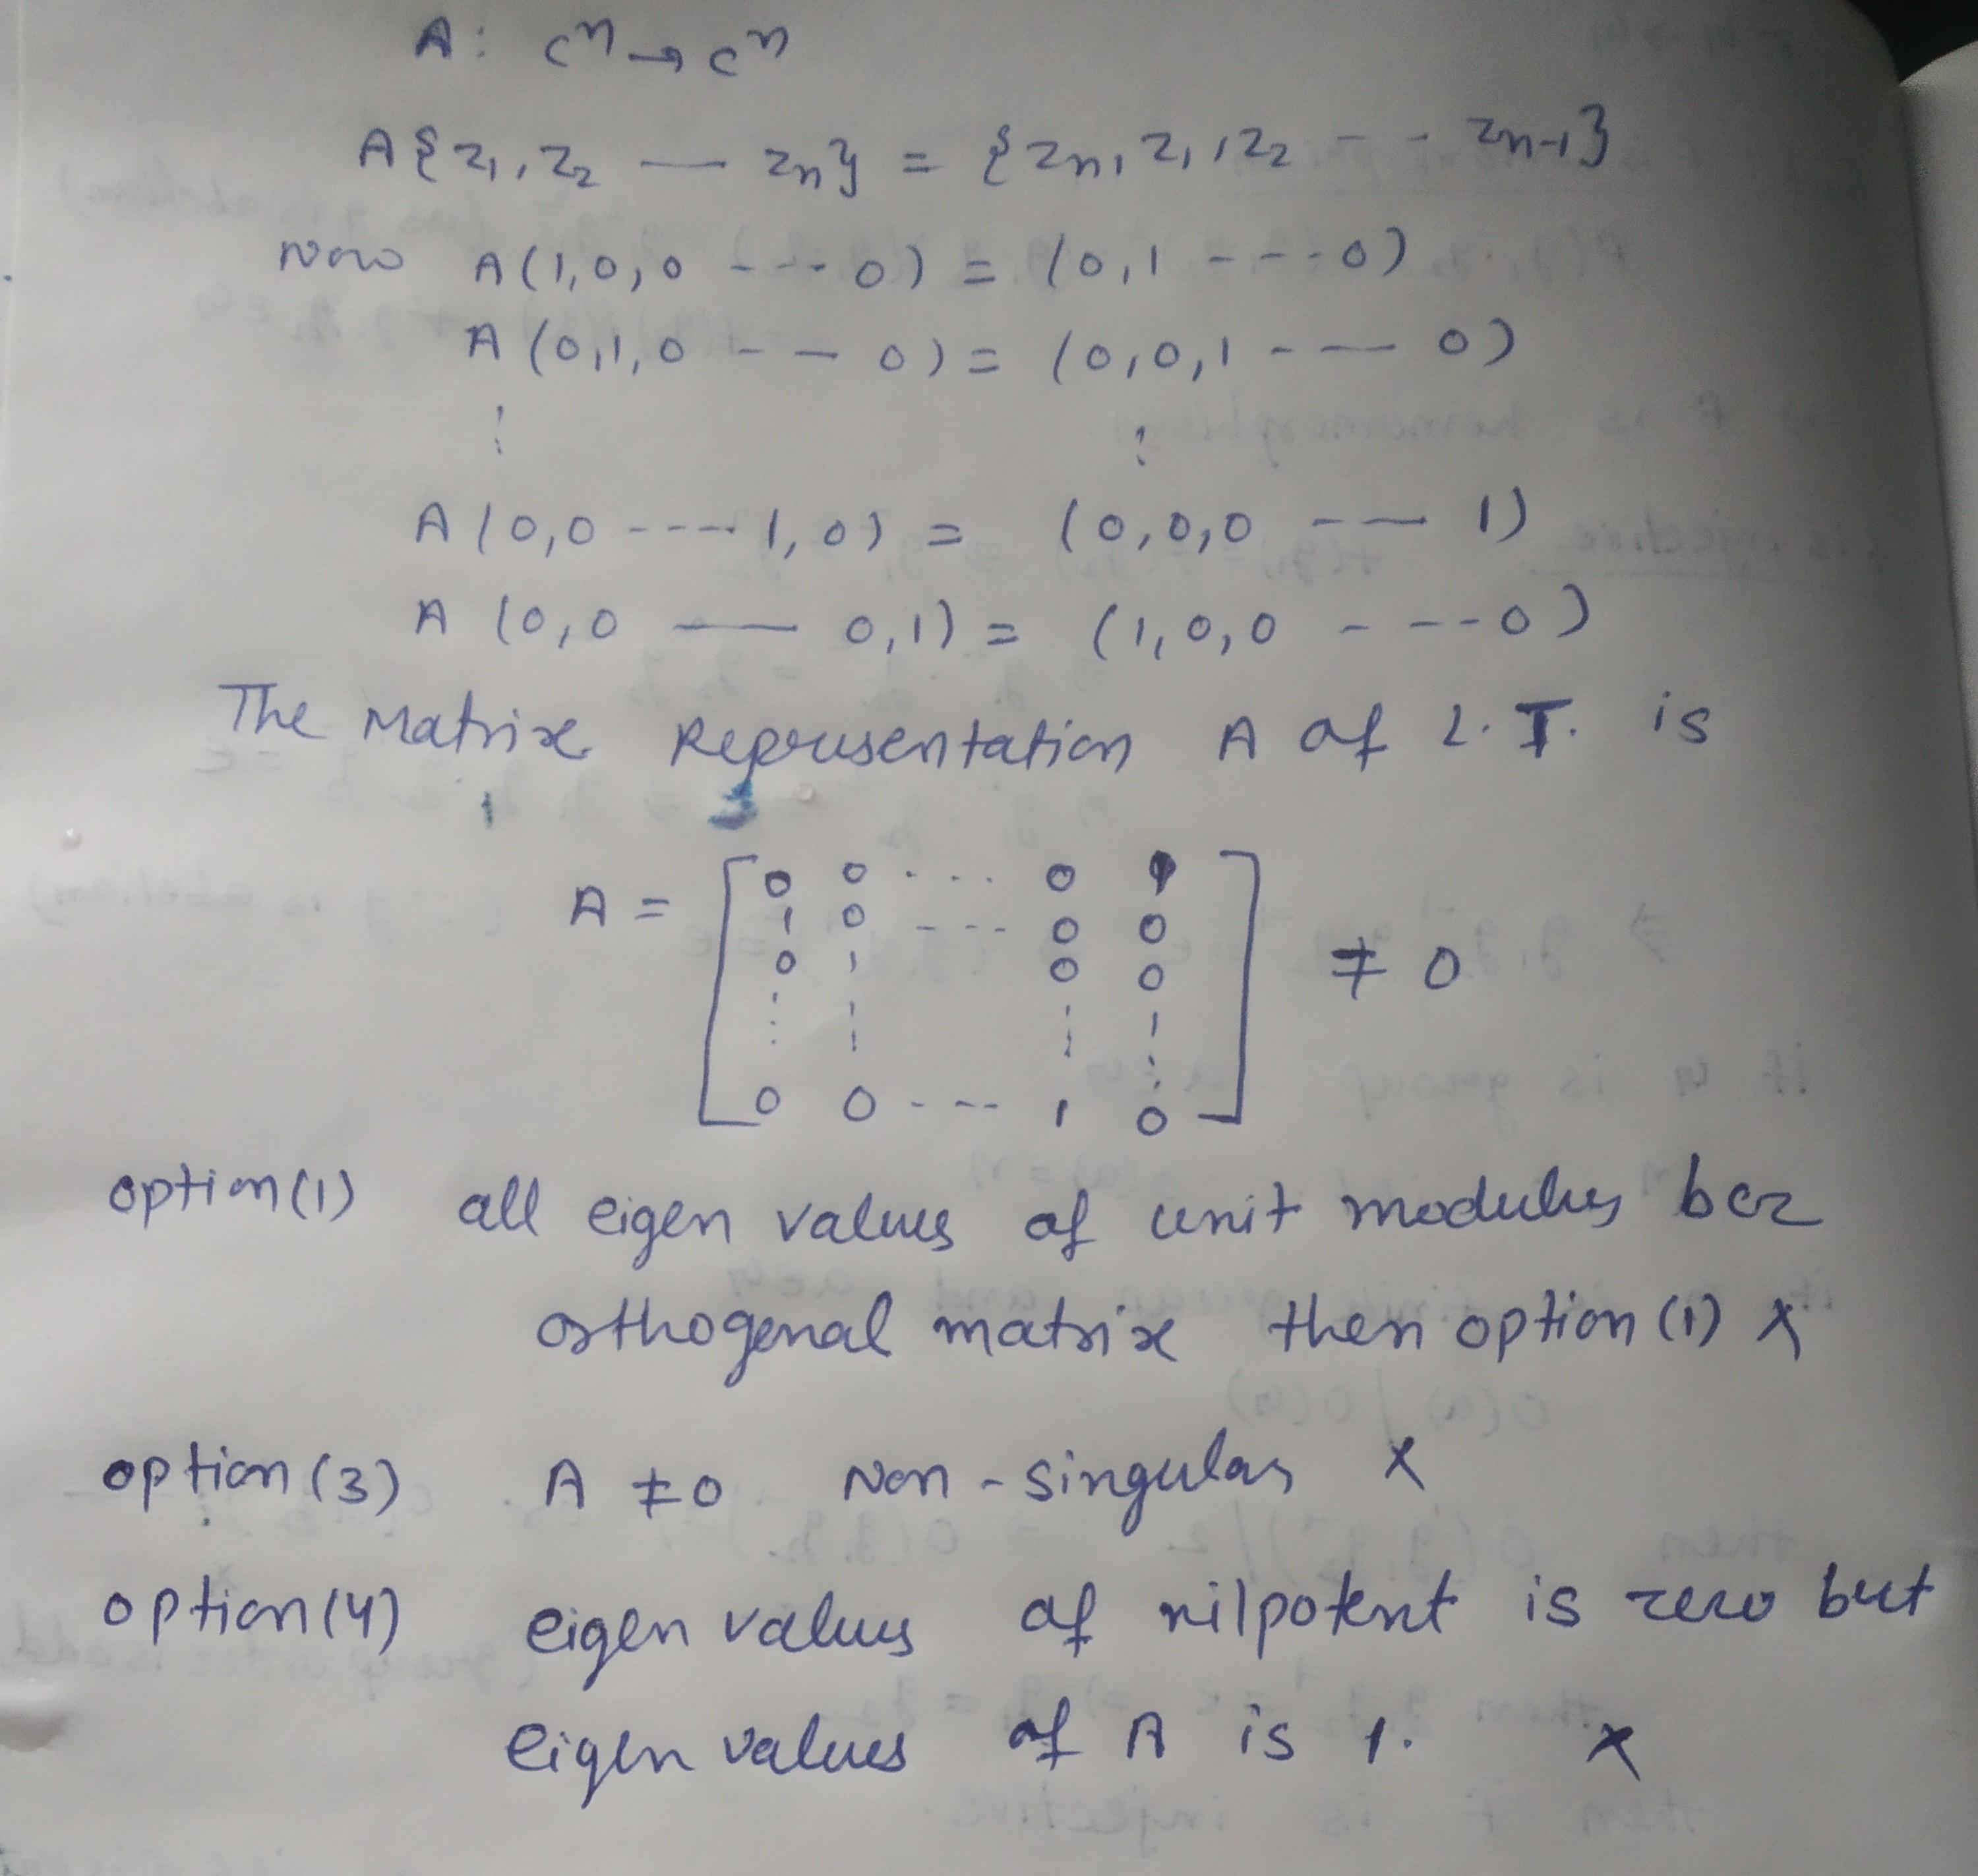 A : Cⁿ → Cⁿ
A{z₁, z₂ — zₙ} = {zₙ, z₁, z₂ - - zₙ₋₁}
Now A(1,0,0 - - - 0) = (0,1 - - - 0)
A(0,1,0 - - 0) = (0,0,1 - - 0)
⋮ ⋮
A(0,0 - - - - 1,0) = (0,0,0 - - 1)
A(0,0 — 0,1) = (1,0,0 - - - 0)
The Matrix Representation A of L.T. is
A = [ 0 0 . . . 0 1
1 0 - - - 0 0
0 1 0 0
⋮ ⋮ ⋮ ⋮
0 0 - - - 1 0 ] ≠ 0
option(1) all eigen values of unit modulus bcz
orthogonal matrix then option(1) ×
option(3) A ≠ 0 Non-singular ×
option(4) eigen values of nilpotent is zero but
eigen values of A is 1. ×